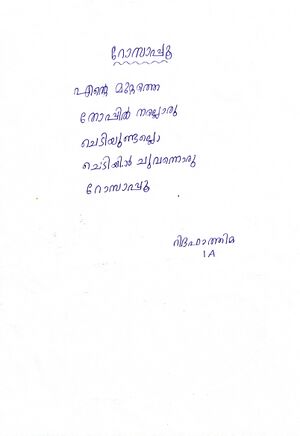 റോസാപ്പൂ
എന്റെ മുറ്റത്തെ
തോപ്പിൽ നല്ലൊരു
ചെടിയുണ്ടല്ലൊ
ചെടിയിൽ ചുവന്നൊരു
റോസാപ്പൂ
റിദഫാത്തിമ
1 A